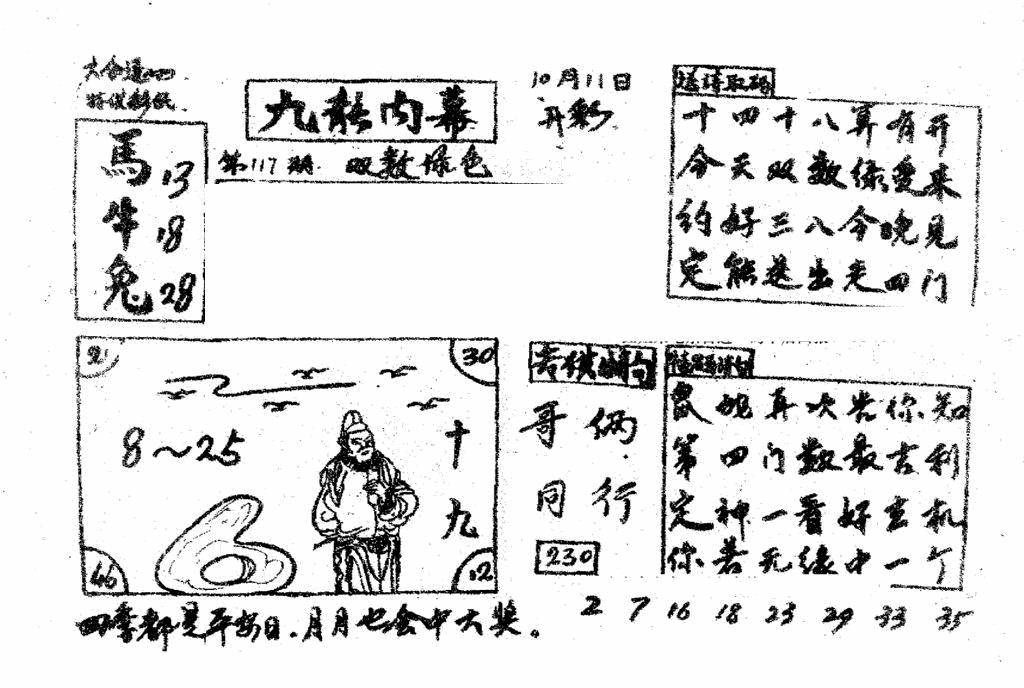 九龙内幕
第117期 双数绿色
10月11日
开彩
馬 13
牛 18
兔 28
送诗取码
十四十八算有开
今天双数绿爱来
约好三八今晚见
定能送出来四门
21
30
8~25
十九
46
12
哥俩
同行
230
鼠蛇再次告你知
第四门数最吉利
定神一看好玄机
你若无缘中一个
四季都是平安日.月月也会中大奖。
2 7 16 18 23 29 33 35